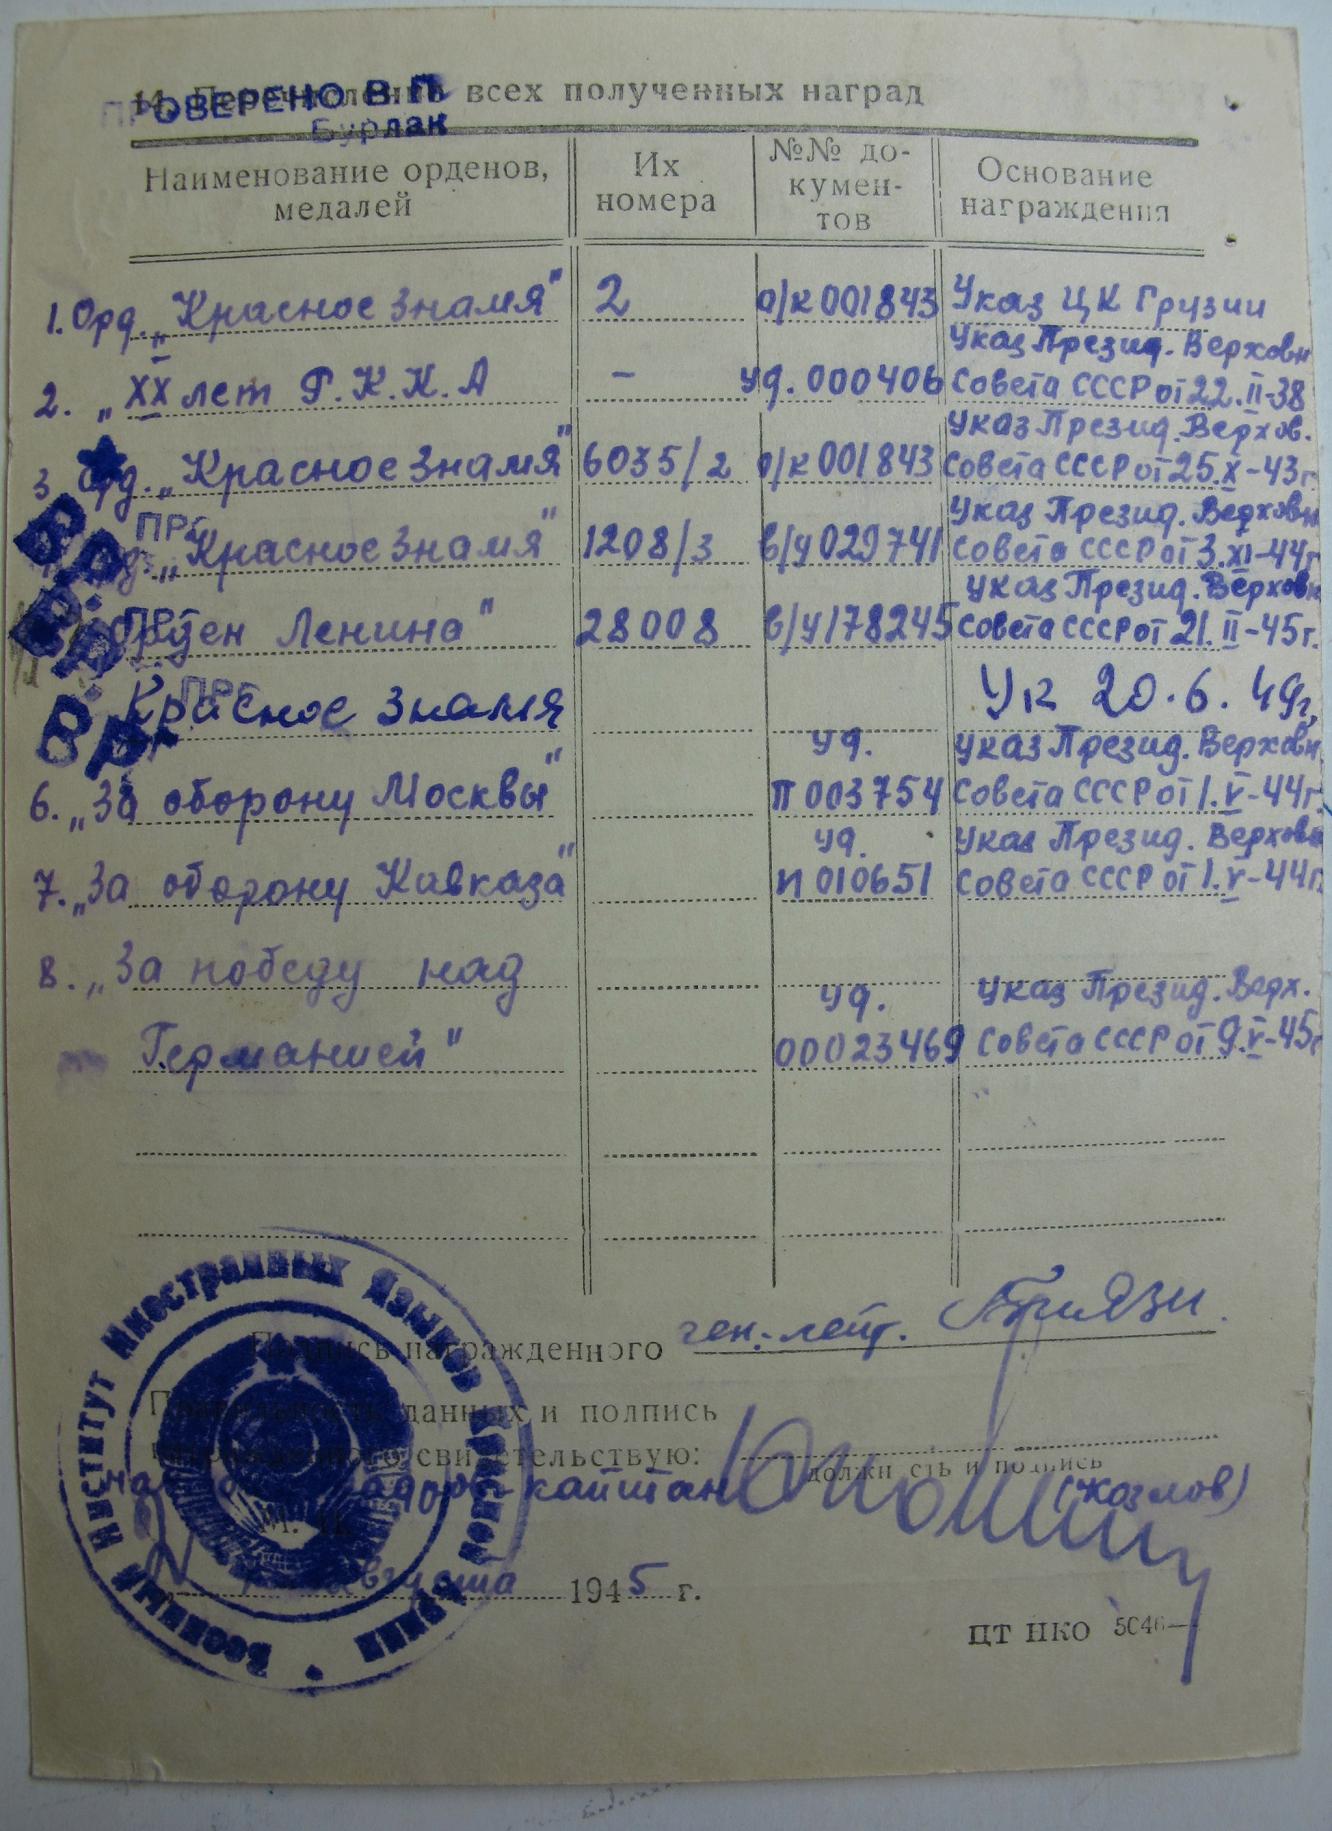 ПРОВЕРЕНО В.П.
Бурлак
14. Перечисление всех полученных наград
Наименование орденов, медалей | Их номера | №№ до-кумен-тов | Основание награждения
1. Орд. „Красное Знамя" 2 о/к 001843 Указ ЦК Грузии
Указ Презид. Верховн
2. „XX лет Р.К.К.А – уд. 000406 Совета СССР от 22.II-38
Указ Презид. Верхов.
3 Орд. „Красное Знамя" 6035/2 о/к 001843 Совета СССР от 25.X-43г
Указ Презид. Верховн
„Красное Знамя" 1208/3 в/у 029741 Совета СССР от 3.XI-44г
Указ Презид. Верховн
Орден Ленина" 28008 в/у 178245 Совета СССР от 21.II-45г.
Красное Знамя Ук 20.6.49г.
уд. Указ Презид. Верховн
6. „За оборону Москвы" П 003754 Совета СССР от 1.V-44г
уд. Указ Презид. Верховн
7. „За оборону Кавказа" И 010651 Совета СССР от 1.V-44г
8. „За победу над
уд. Указ Презид. Верх.
Германией" 00023469 Совета СССР от 9.V-45г
Вр.
Вр.
Вр.
ПРС
ПРС
ПРС
Подпись награжденного ген.-лейт.
Правильность данных и подпись
награжденного свидетельствую:
должность и подпись
капитан (Козлов)
М. П.
августа 1945 г.
ЦТ НКО 5046
Военный Институт Иностранных Языков Красной Армии